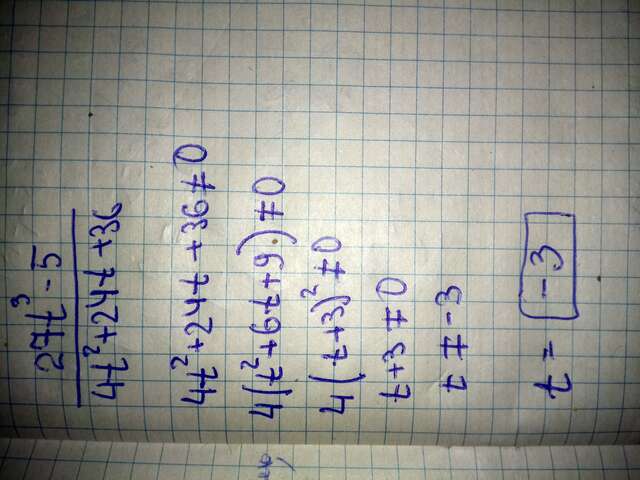 27t³ - 5
4t² + 24t + 36
4t² + 24t + 36 ≠ 0
4(t² + 6t + 9) ≠ 0
4(t + 3)² ≠ 0
t + 3 ≠ 0
t ≠ -3
t = -3